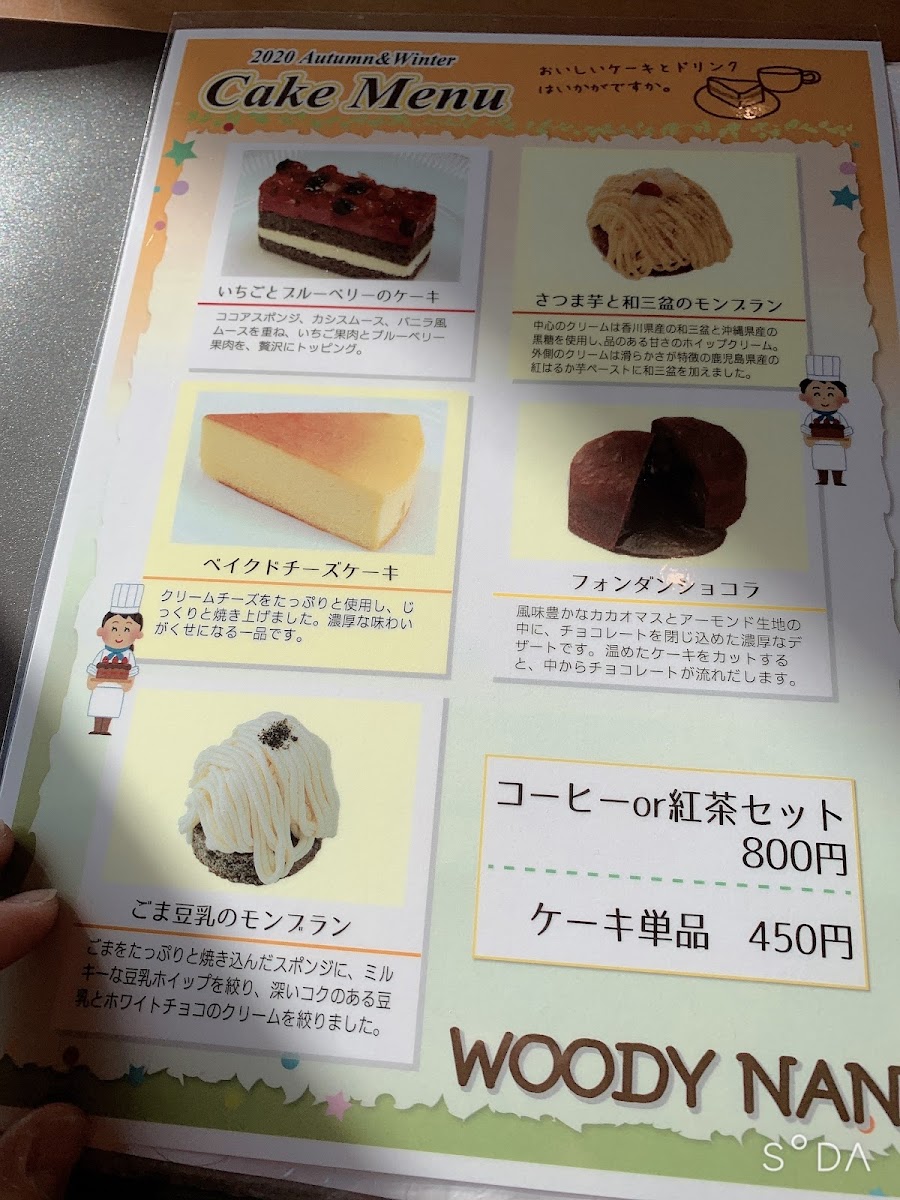 2020 Autumn&Winter
Cake Menu
おいしいケーキとドリンク
はいかがですか。
いちごとブルーベリーのケーキ
ココアスポンジ、カシスムース、バニラ風
ムースを重ね、いちご果肉とブルーベリー
果肉を、贅沢にトッピング。
さつま芋と和三盆のモンブラン
中心のクリームは香川県産の和三盆と沖縄県産の
黒糖を使用し、品のある甘さのホイップクリーム。
外側のクリームは滑らかさが特徴の鹿児島県産の
紅はるか芋ペーストに和三盆を加えました。
ベイクドチーズケーキ
クリームチーズをたっぷりと使用し、じ
っくりと焼き上げました。濃厚な味わい
がくせになる一品です。
フォンダンショコラ
風味豊かなカカオマスとアーモンド生地の
中に、チョコレートを閉じ込めた濃厚なデ
ザートです。温めたケーキをカットする
と、中からチョコレートが流れだします。
ごま豆乳のモンブラン
ごまをたっぷりと焼き込んだスポンジに、ミル
キーな豆乳ホイップを絞り、深いコクのある豆
乳とホワイトチョコのクリームを絞りました。
コーヒーor紅茶セット
800円
ケーキ単品 450円
WOODY NAN
SODA